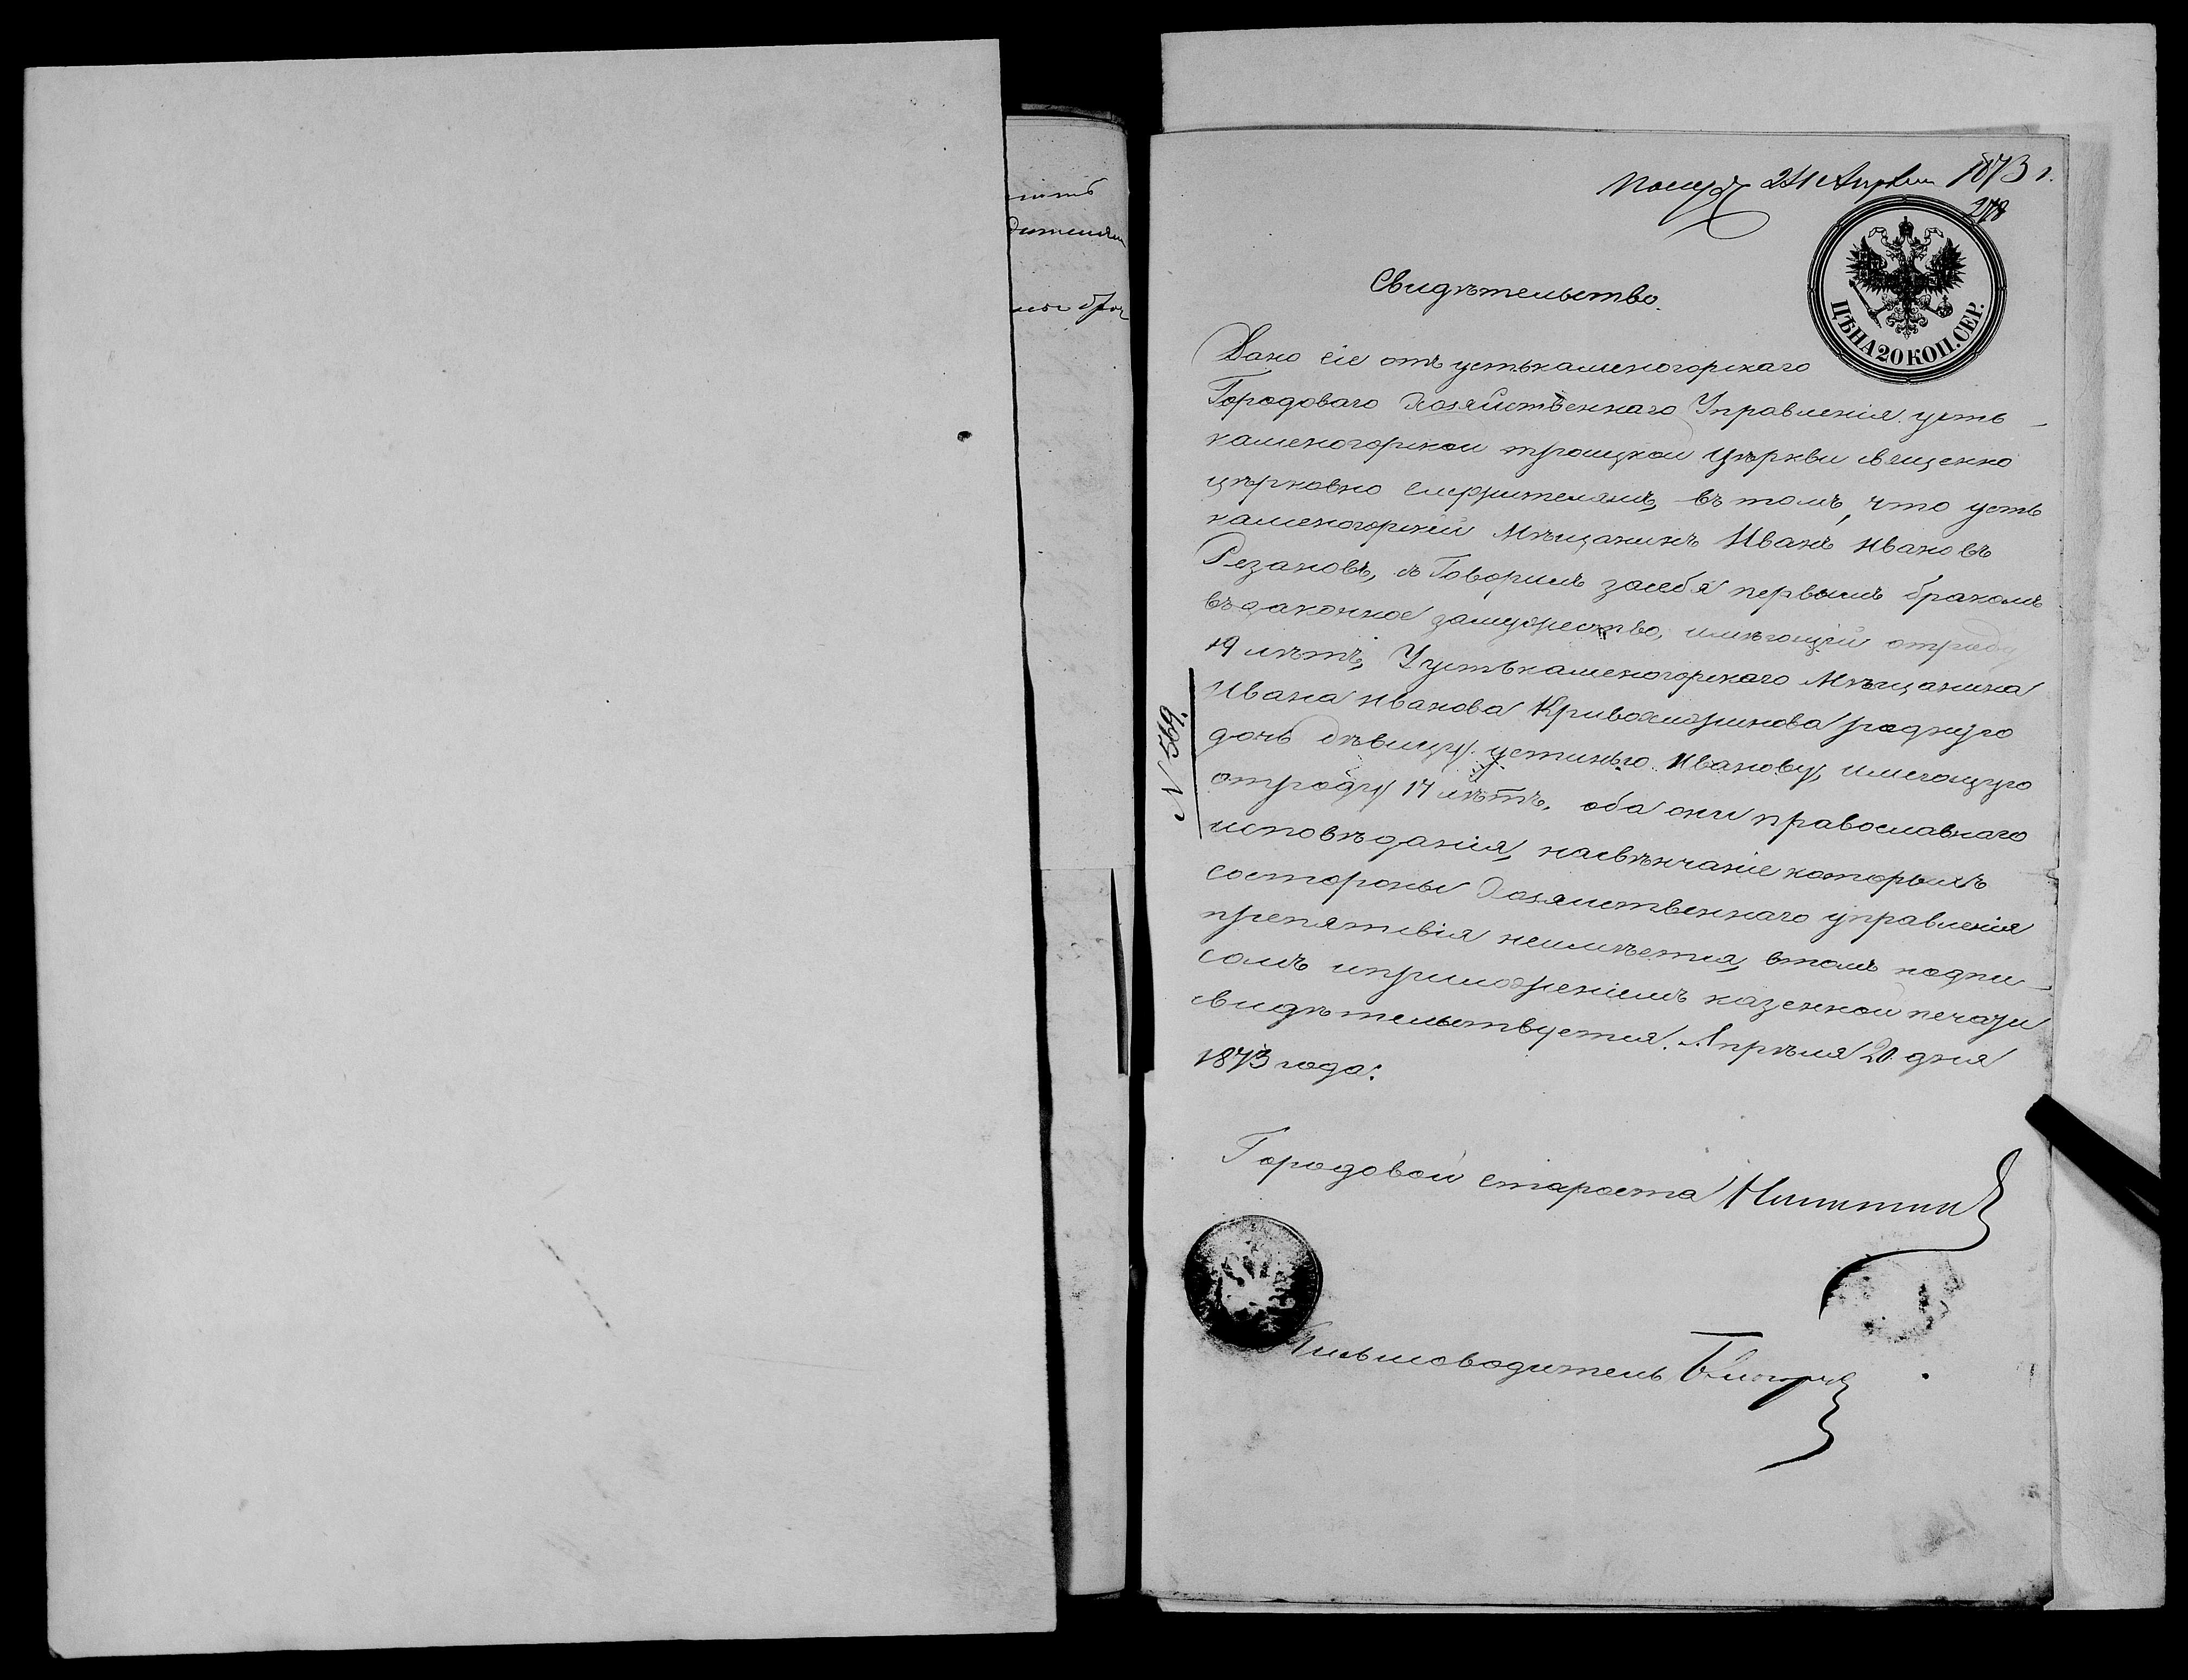 Получ 24 Апреля 1873 г.
278
ЦѢНА 20 КОП. СЕР.
Свидѣтельство.
Дано сіе отъ устькаменогорскаго
Городоваго Хозяйственнаго Управленія усть-
каменогорской троицкой Цѣркви священно
цѣрковно служителямъ, въ томъ, что усть
каменогорскій Мѣщанинъ Иванъ Ивановъ
Резановъ, з Говоримъ засебя первымъ бракомъ
въ законное замужество, имѣющій отроду
19 лѣтъ, Устькаменогорскаго Мѣщанина
Ивана Иванова Кривохижинова родную
дочь дѣвицу устинью Иванову, имеющую
отроду 17 лѣтъ. оба они православнаго
исповѣданія, насвѣнчаніе которыхъ
состороны Хозяиственнаго управленія
препятсвія неимѣетця, втомъ подпи-
сомъ иприложеніемъ казенной печати
свидѣтельствуется. Апрѣля 20 дня
1873 года.
N 569.
Городовой староста Никитин
Письмоводитель